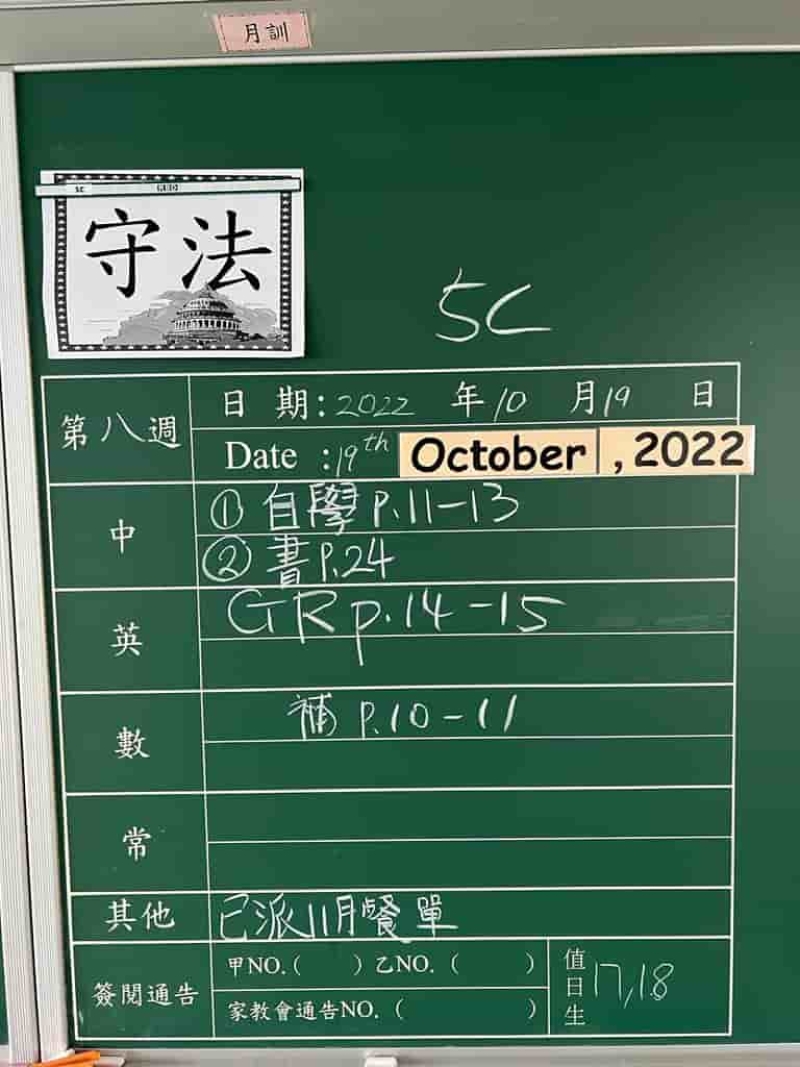 月訓
5C
守法
5C
第八週
日 期：2022 年10 月19 日
Date :19th October , 2022
中
① 自學 P.11-13
② 書P.24
英
GR p.14-15
數
補 P.10-11
常
其他
已派11月餐單
簽閱通告
甲NO.( ) 乙NO. ( )
家教會通告NO. ( )
值日生
17,18